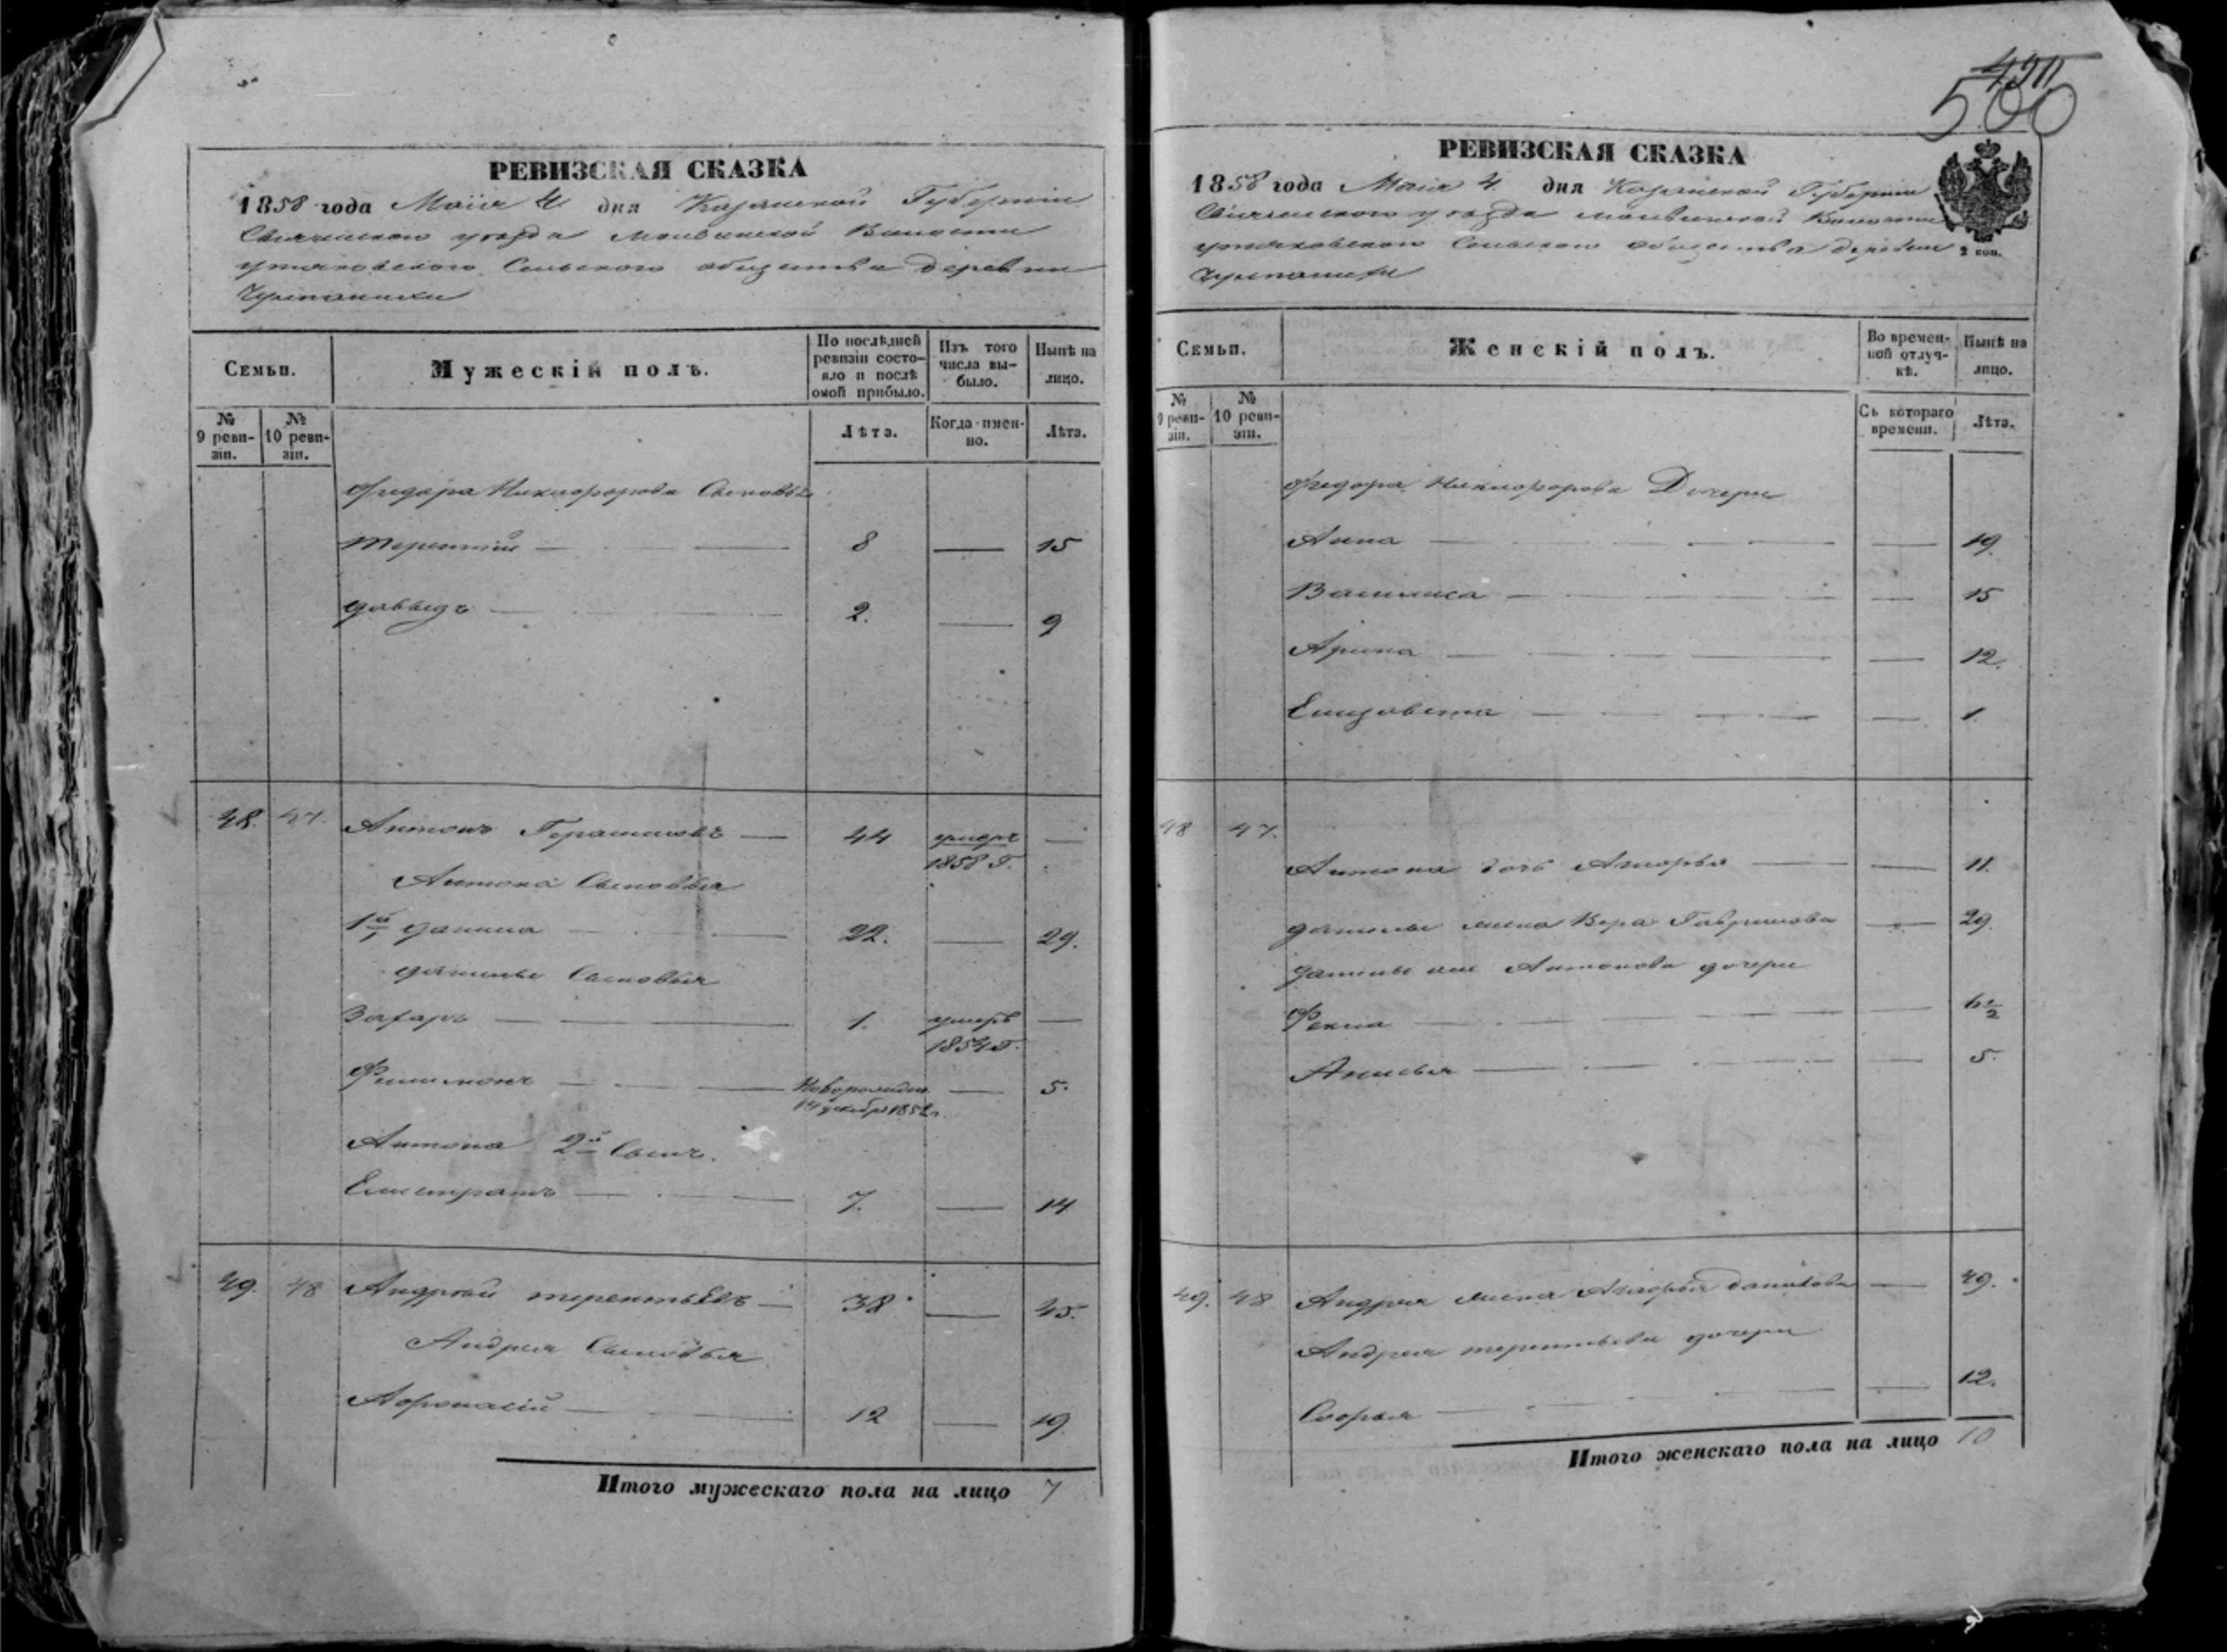 РЕВИЗСКАЯ СКАЗКА
1858 года Маія 4 дня Казанской Губерніи
Свіяжскаго уезда Молвинской Волости
Утяковского Сельского общества деревни
СЕМЬИ.
Мужескій полъ.
По послѣдней ревизіи состояло и послѣ оной прибыло.
Изъ того числа выбыло.
Нынѣ на лицо.
№ 9 ревизіи.
№ 10 ревизіи.
Лѣта.
Когда именно.
Лѣта.
Федора Никифорова Сыновья
Терентий — 8 — 15
Давыдъ — 2. — 9
48. 47. Антонъ Герасимовъ — 44 умеръ —
1858 Г.
Антона Сыновья
1й Данила — 22. — 29.
Данилы Сыновья
Захаръ — 1. умеръ —
1854 Г.
Филимонъ — Новорожден — 5.
Антона 2й Сынъ.
Елистратъ — 7. — 14
49. 48 Андрей Терентьевъ — 38 — 45.
Андрея Сыновья
Афонасій — 12 — 19
Итого мужескаго пола на лицо 7
500
РЕВИЗСКАЯ СКАЗКА
1858 года Маія 4 дня Казанской Губерніи
Свіяжского уезда Молвинской Волости
Утяковского Сельского общества деревни
2 коп.
СЕМЬИ.
Женскій полъ.
Во временной отлучкѣ.
Нынѣ на лицо.
№ 9 ревизіи.
№ 10 ревизіи.
Съ котораго времени.
Лѣта.
Федора Никифорова Дочери
Анна — 19.
Васил��са — 15
Арина — 12.
Елизовета — 1.
48 47.
Антона дочь — 11.
Данилы жена Вера Гаврилова — 29.
Данилы Антонова дочери
Фекла — 6½
Анисья — 5.
49. 48 Андрея жена Данилова — 49.
Андрея Терентьева дочери
Софья — 12.
Итого женскаго пола на лицо 10